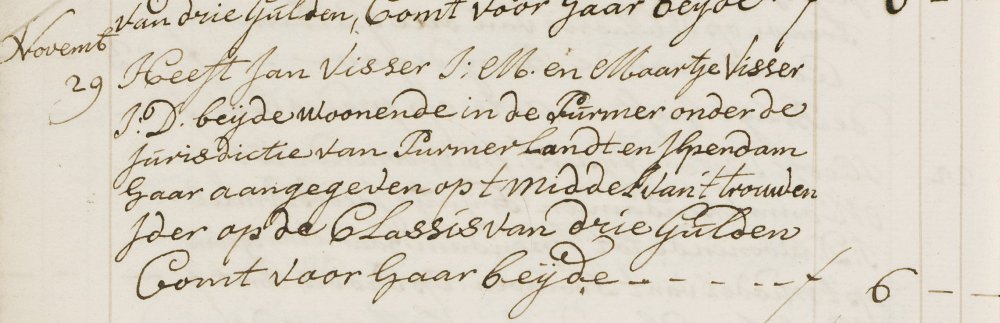 van drie Gulden, Comt voor haar beyde f 6 –
Novemb
29 Heeft Jan Visser J: M. en Maartje Visser
J. D. beijde woonende in de Purmer onder de
Jurisdictie van Purmerlandt en Ilpendam
haar aangegeven op t middel van't trouwen
Ider op de Classis van drie Gulden
Comt voor haar beijde - - - - - f 6 – –